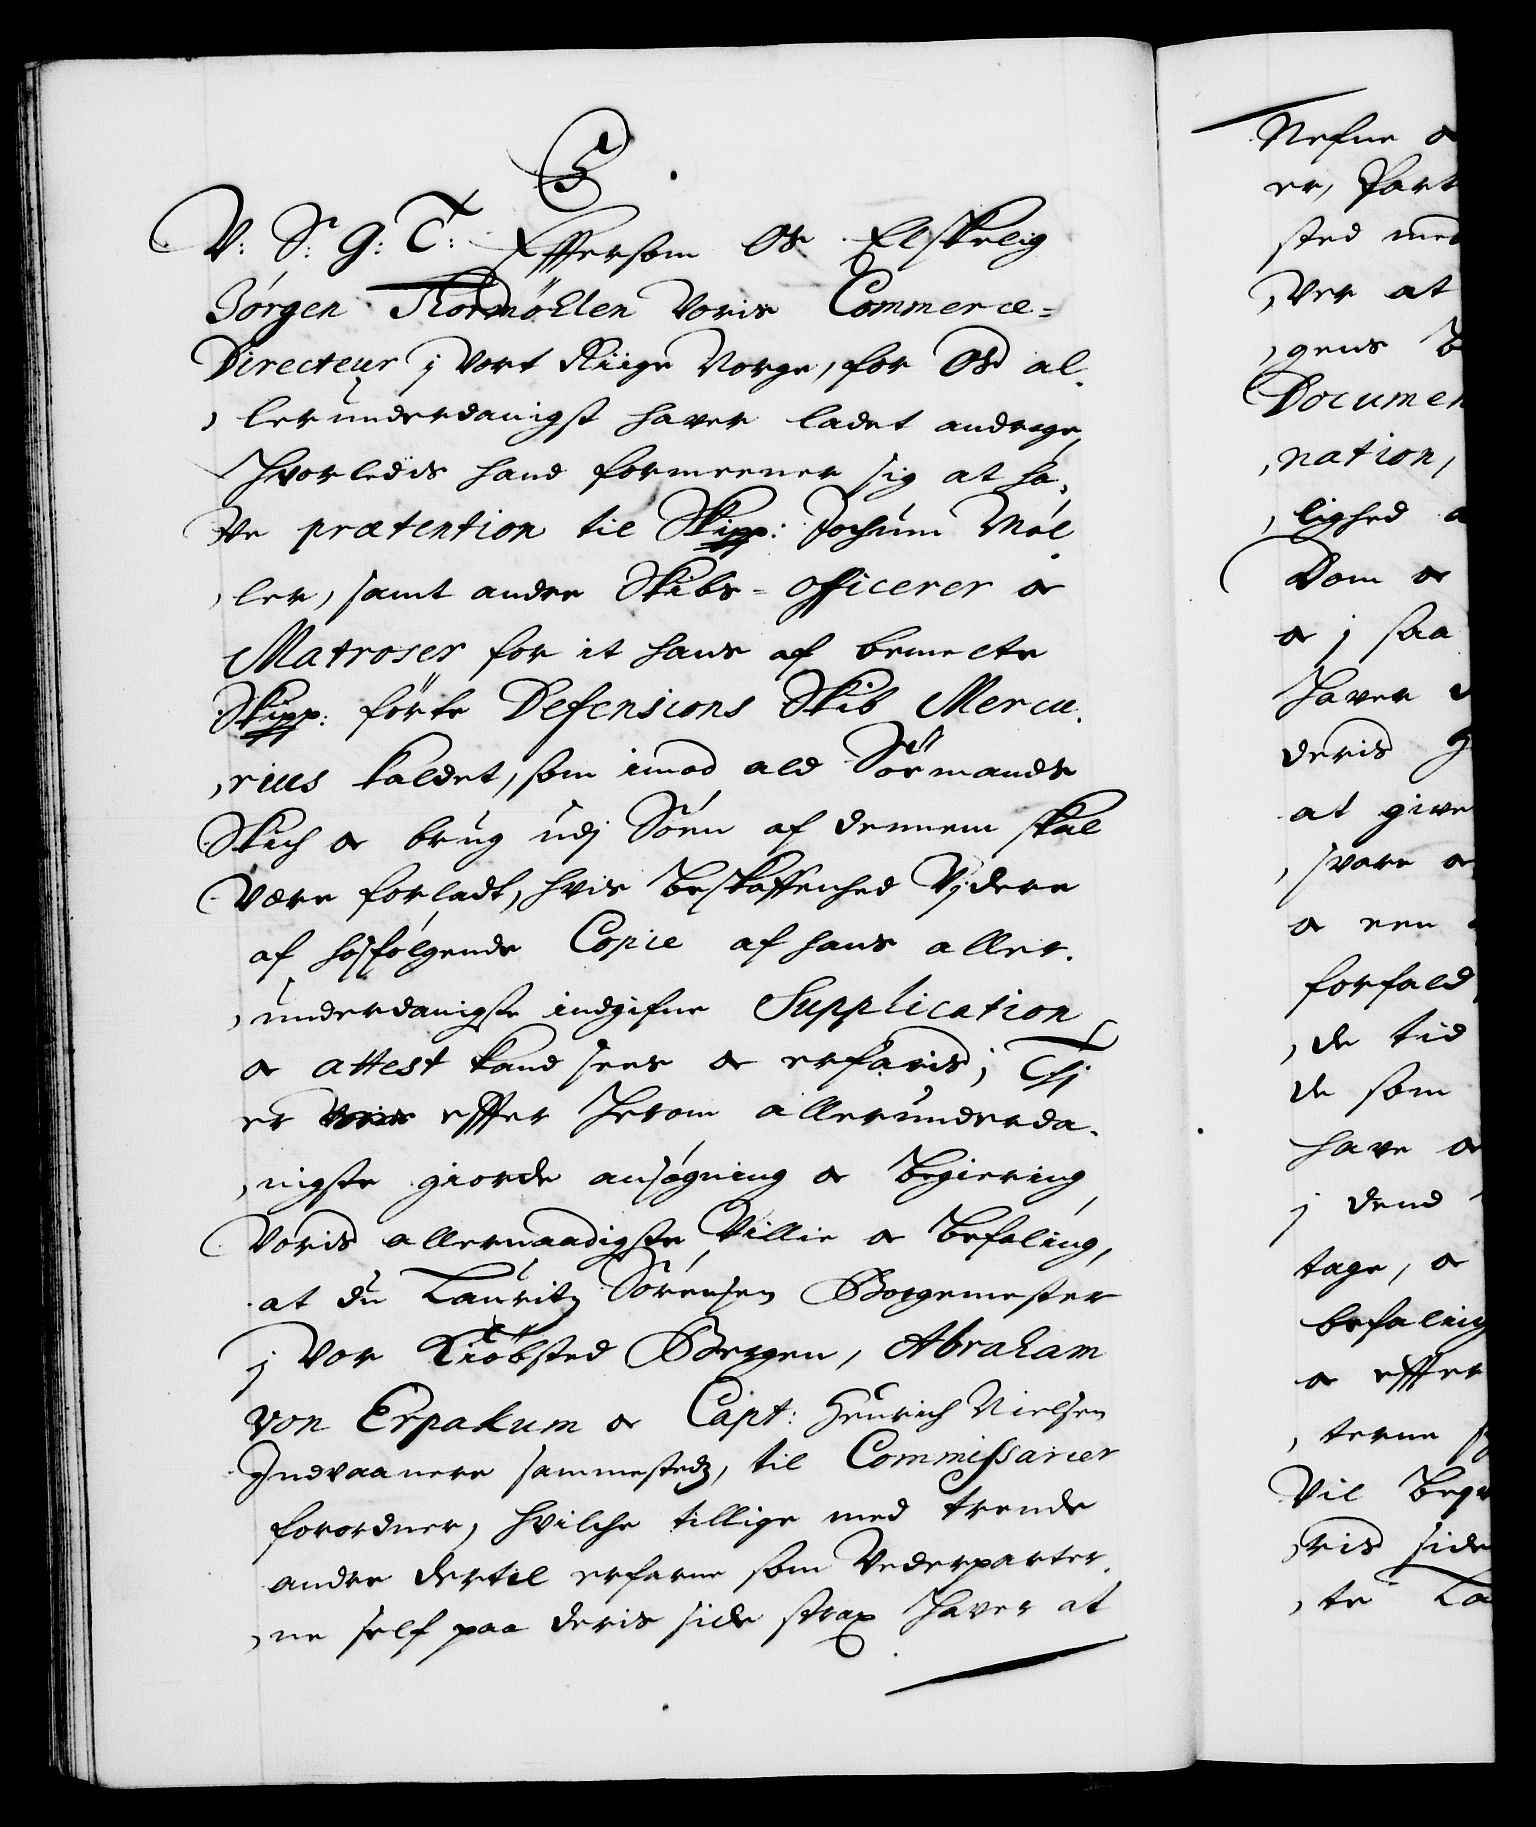 5.
V: S: G: T: Effersom Os Elskelig
Jörgen Tormöhlen Voris Commerce=
Directeur j Vort Riige Norge, for Os al,
,lerunderdanigst hafver ladet andrage,
Hvorledis hand formeener sig at ha,
ve prætention til Skipp: Jochum Møl
,ler, samt andre Skibs=officerer oc
Matroser for it hans af bemelte
Skipp: förte Defensions Skib Mercu,
,rius kaldet, som imod ald Söemands
Skich oc brug udj Söen af dennem skal
være forladt, hvis Beskaffenhed Vjdere
af hosfølgende Copie af hans aller,
,underdanigste indgifne Supplication
oc attest kand sees oc erfaris; Thj
er effter Herom allerunderda,
,nigste giorde ansøgning oc Begiering
Voris allernaadigste Villie oc Befaling,
at du Lauritz Sörensen Borgemester
j Vor Kiöbsted Bergen, Abraham
von Erpakum oc Capt: Henrich Nielsen
Indvaanere sammestedz, til Commissarier
forordner, hvilche tillige med trende
andre dertil erfarne som Vederparter,
,ne self paa deris side strax Hafver at
Nefne oc
er, Part
sted med
,ver at
,gens B
Documen
,nation,
,lighed
Dom oc
oc j saa
Hafver
deris G
at give
,svare oc
oc een
forfald
,de tid
de som
have oc
j dend
tage, oc
befaling
oc effter
,terne
Vil Begie
,ris side
,te La